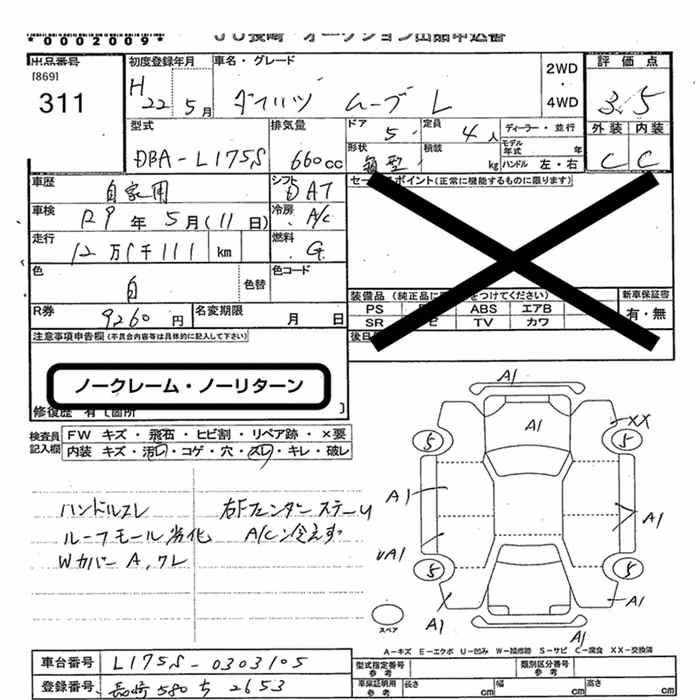 *0002009*
JU長崎 オークション出品申込書
出品番号
[869]
311
初度登録年月
H22 5月
車名・グレード
ダイハツ ムーブ L
2WD
・
4WD
評価点
3.5
外装 内装
C C
型式
DBA-L175S
排気量
660cc
ドア
5
定員
4人
ディーラー・並行
モデル年式 年
形状
箱型
積載
kg
ハンドル 左・右
車歴
自家用
シフト
DAT
車検
R9年5月(11日)
冷房
A/C
走行
12万1千111 km
燃料
G
色
白
色替
色コード
R券
9260円
名変期限
月 日
セールスポイント(正常に機能するものに限ります)
装備品
PS
ABS エアB
SR
TV カワ
新車保証書
有・無
注意事項申告欄(不具合内容等は具体的に記入して下さい)
ノークレーム・ノーリターン
修復歴 有[箇所 ]
検査員
記入欄
FW キズ・飛石・ヒビ割・リペア跡・×要
内装 キズ・汚レ・コゲ・穴・スレ・キレ・破レ
ハンドルスレ
ルーフモール劣化
Wカバー A,ワレ
右Fフェンダー ステー
A/C 冷えず
A1
A1
XX
5
5
A1
A1
UA1
5
5
A1
A1
A1
スペア
A-キズ E-エクボ U-凹み W-補修跡 S-サビ C-腐食 XX-交換済
車台番号
L175S-0303105
登録番号
長崎 580 ち 2653
型式指定番号
参考
類別区分番号
参考
車庫証明用
参考
長さ
cm
幅
cm
高さ
cm